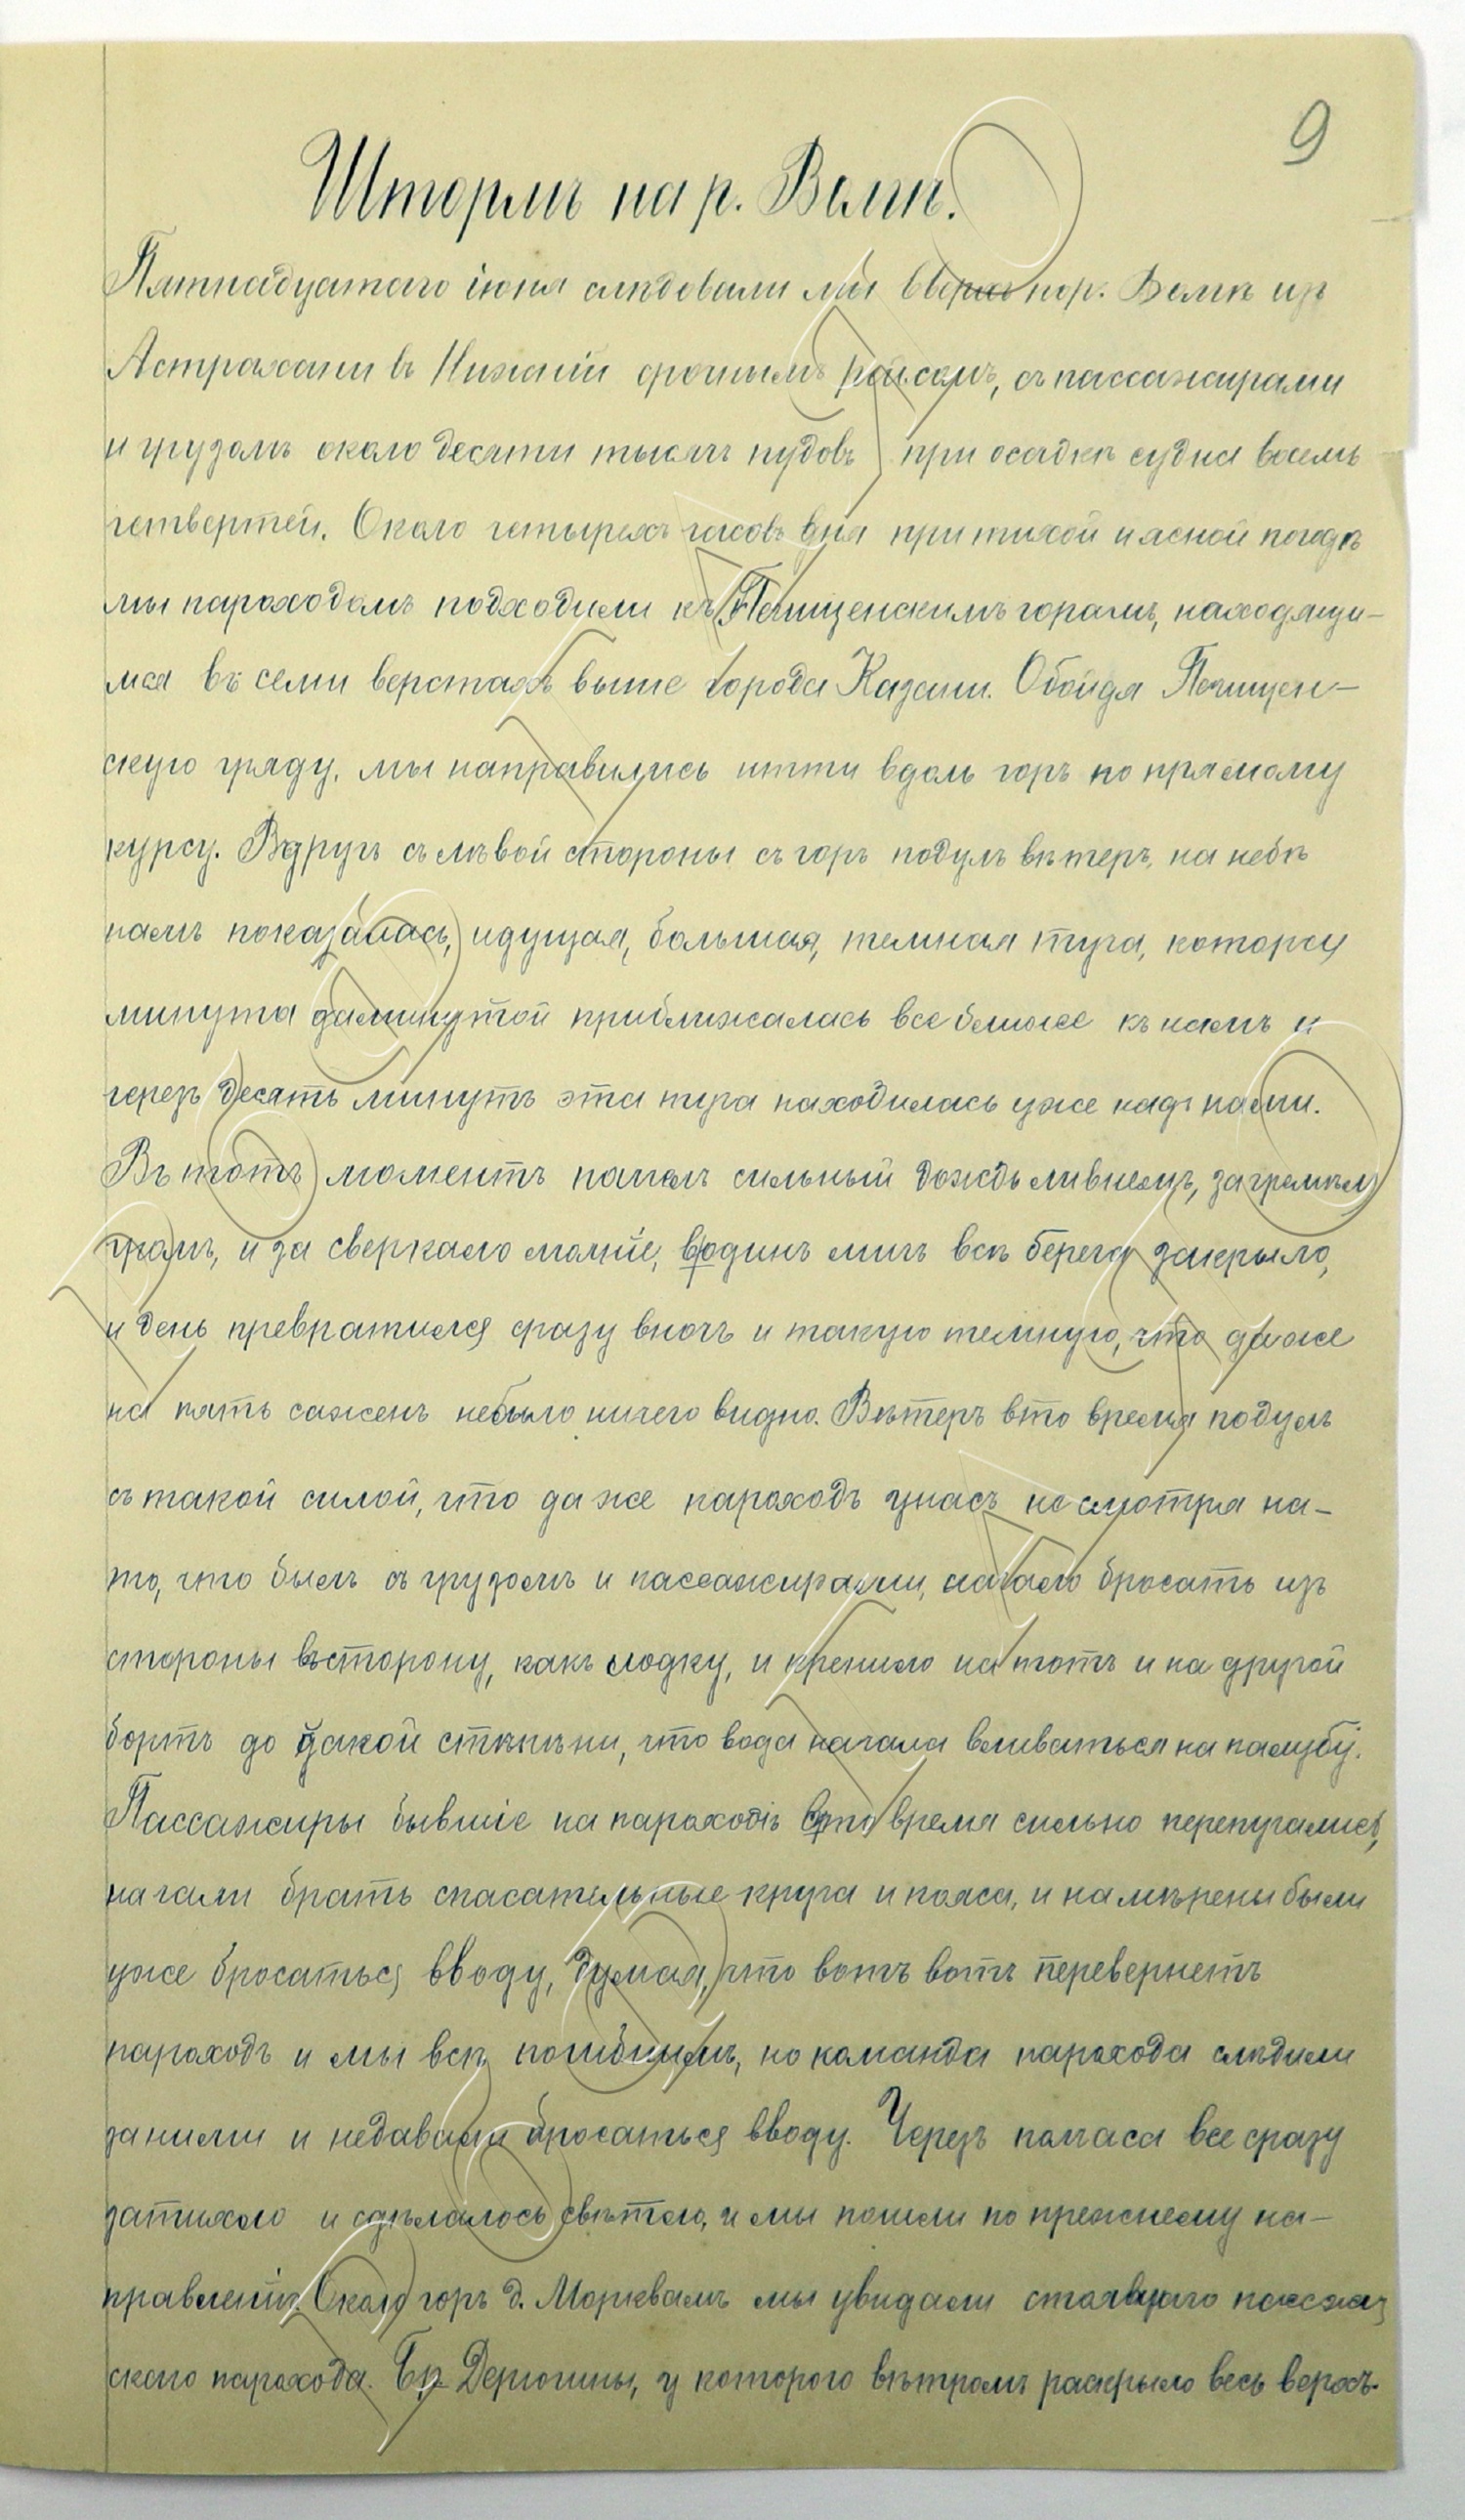 9
Штормъ на р. Волгѣ.
Пятнадцатаго іюня слѣдовали мы вверхъ по р. Волгѣ изъ
Астрахани въ Нижній срочнымъ рейсомъ, съ пассажирами
и грузомъ около десяти тысячъ пудовъ при осадкѣ судна восемь
четвертей. Около четырехъ часовъ дня при тихой и ясной погодѣ
мы пароходомъ подходили къ Печищенскимъ горамъ, находящи-
мся въ семи верстахъ выше города Казани. Обойдя Печищен-
скую гряду, мы направились итти вдоль горъ по прямому
курсу. Вдругъ съ лѣвой стороны съ горъ подулъ вѣтеръ, на небѣ
намъ показалась, идущая, большая, темная туча, которая
минута заминутой приближалась все ближе къ намъ и
черезъ десять минутъ эта туча находилась уже надъ нами.
Въ тотъ моментъ пошелъ сильный дождь ливнемъ, загремѣлъ
громъ, и за сверкало молніе, водинъ мигъ всѣ берега закрыло,
и день превратился сразу вночь и такую темную, что даже
на пять саженъ небыло ничего видно. Вѣтеръ вто время подулъ
съ такой силой, что да же пароходъ унасъ не смотря на-
то, что былъ съ грузомъ и пассажирами, начало бросать изъ
стороны въсторону, какъ лодку, и кренило на тотъ и на другой
бортъ до такой стѣпѣни, что вода начала вливаться на палубу.
Пассажиры бывшіе на пароходѣ вто время сильно перепугались,
начали брать спасательные круга и пояса, и намѣрены были
уже бросаться вводу, думая, что вотъ вотъ перевернетъ
пароходъ и мы всѣ погибнимъ, но команда парохода слѣдили
заними и недавали бросаться вводу. Черезъ полчаса все сразу
затихло и сдѣлалось свѣтло, и мы пошли по прежнему на-
правленію. Около горъ д. Моркваш мы увидали стоявшаго
скаго парохода. Бр. Дерюгины, у которого вѣтромъ раскрыло весь верхъ.